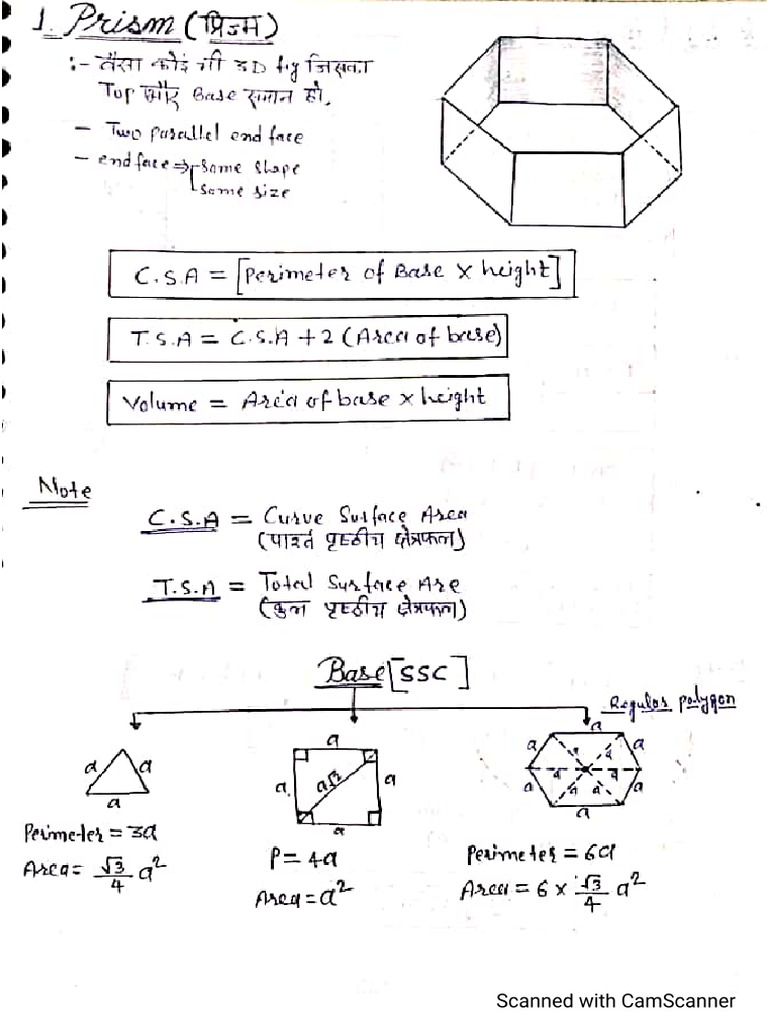 1. Prism (प्रिज्म)
:- वैसा कोई भी 3D fig जिसका
Top और Base समान हो,
- Two parallel end face
- end face ⇒ Same shape
Same size
C.S.A = [Perimeter of Base × height]
T.S.A = C.S.A + 2 (Area of base)
Volume = Area of base × height
Note
C.S.A = Curve Surface Area
(पार्श्व पृष्ठीय क्षेत्रफल)
T.S.A = Total Surface Are
(कुल पृष्ठीय क्षेत्रफल)
Base [SSC]
Regular polygon
a a
a
Perimeter = 3a
Area = √3/4 a²
a
a a√2 a
a
P = 4a
Area = a²
a
a a a a
a a
a a a a
a
Perimeter = 6a
Area = 6 × √3/4 a²
Scanned with CamScanner